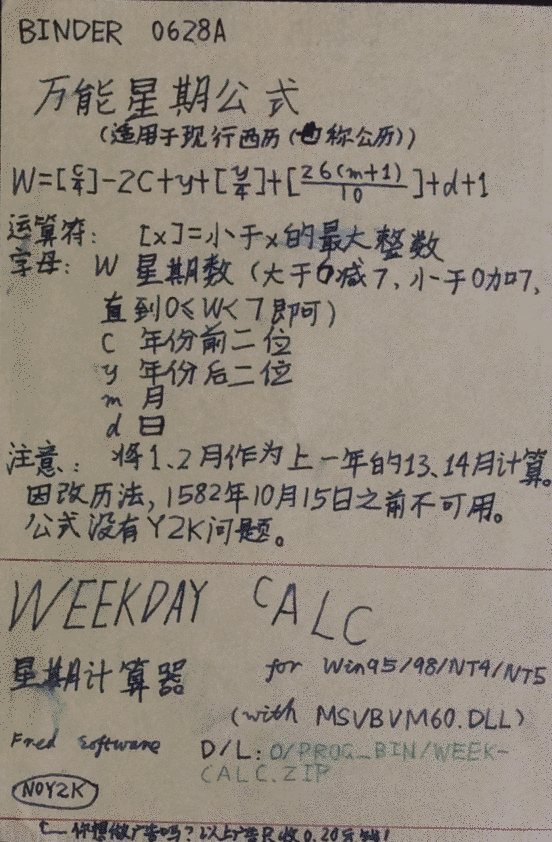 BINDER 0628A
万能星期公式
(适用于现行西历(也称公历))
W=[c/4]-2C+y+[y/4]+[26(m+1)/10]+d+1
运算符: [x]=小于x的最大整数
字母: W 星期数(大于6减7,小于0加7,
直到0≤W<7即可)
C 年份前二位
y 年份后二位
m 月
d 日
注意: 将1、2月作为上一年的13、14月计算。
因改历法,1582年10月15日之前不可用。
公式没有Y2K问题。
WEEKDAY CALC
星期计算器 for Win95/98/NT4/NT5
(with MSVBVM60.DLL)
Fred Software D/L: O/PROG_BIN/WEEK-
CALC.ZIP
NOY2K
你想做广告吗?以上广告只收0.20元钱!